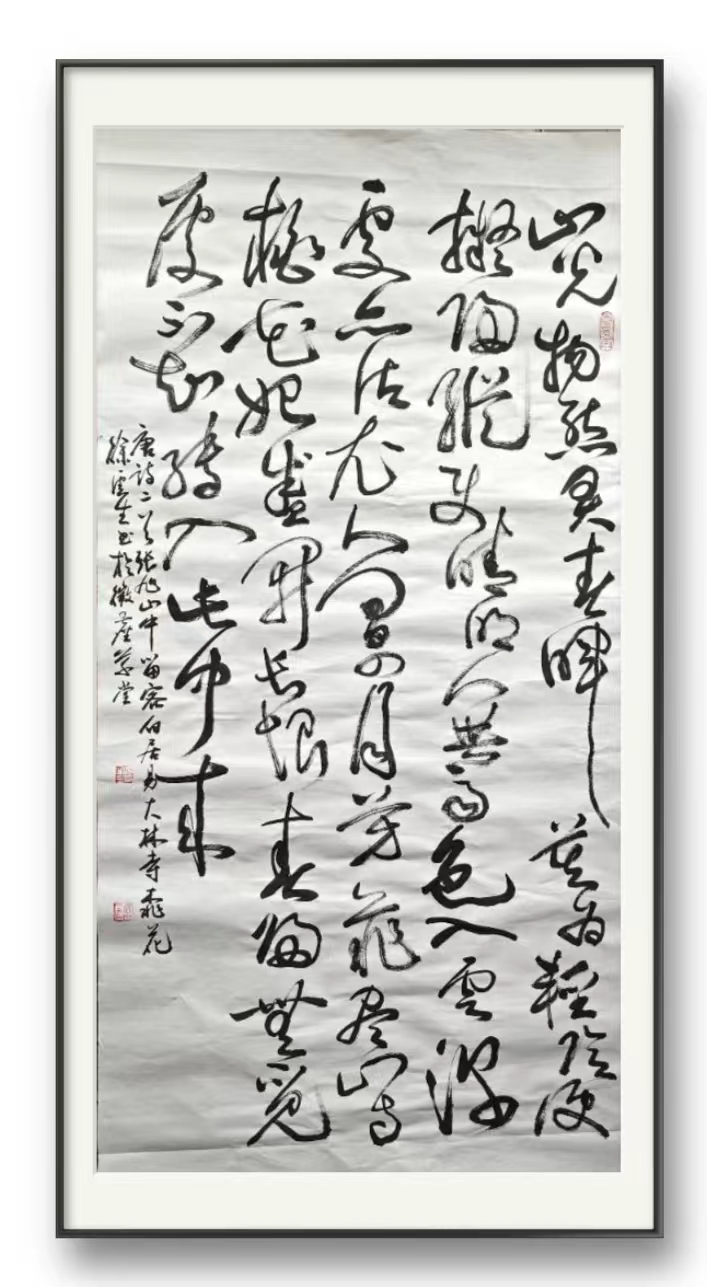 山光物態弄春暉莫為輕陰便
擬歸縱使晴明無雨色入雲深
處亦沾衣人間四月芳菲尽山寺
桃花始盛開長恨春歸無覓
處不知轉入此中來
唐詩二首張旭山中留客白居易大林寺桃花
徐雲生书於草堂